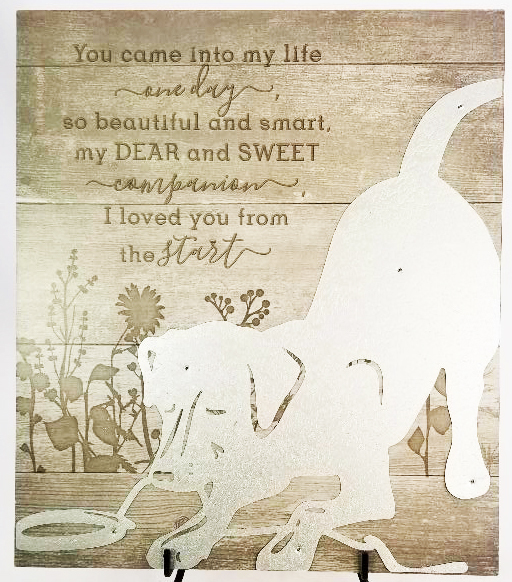 You came into my life
one day,
so beautiful and smart,
my DEAR and SWEET
companion,
I loved you from
the start